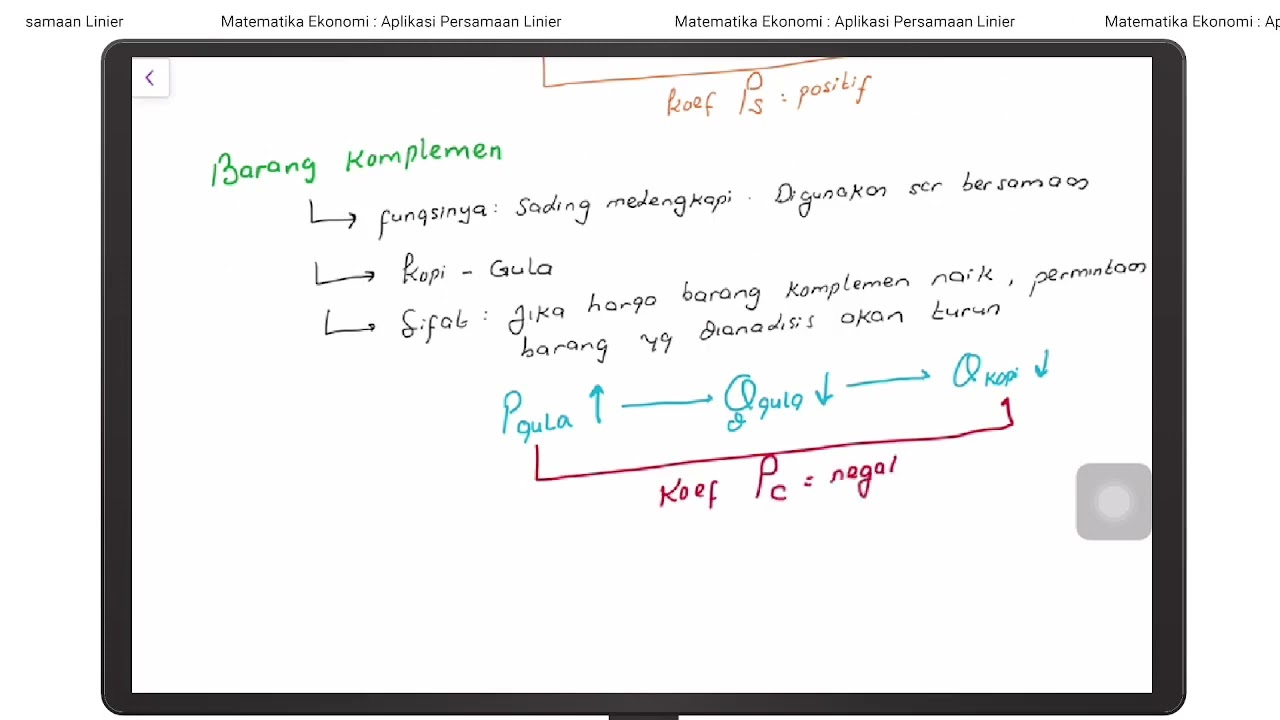 samaan Linier Matematika Ekonomi : Aplikasi Persamaan Linier Matematika Ekonomi : Aplikasi Persamaan Linier Matematika Ekonomi : Ap
koef Ps : positif
Barang Komplemen
fungsinya : Saling melengkapi . Digunakan scr bersamaan
Kopi - Gula
Sifat : Jika harga barang komplemen naik , permintaan
barang yg dianalisis akan turun
P gula ↑ → Qd gula ↓ → Q kopi ↓
Koef Pc = negat